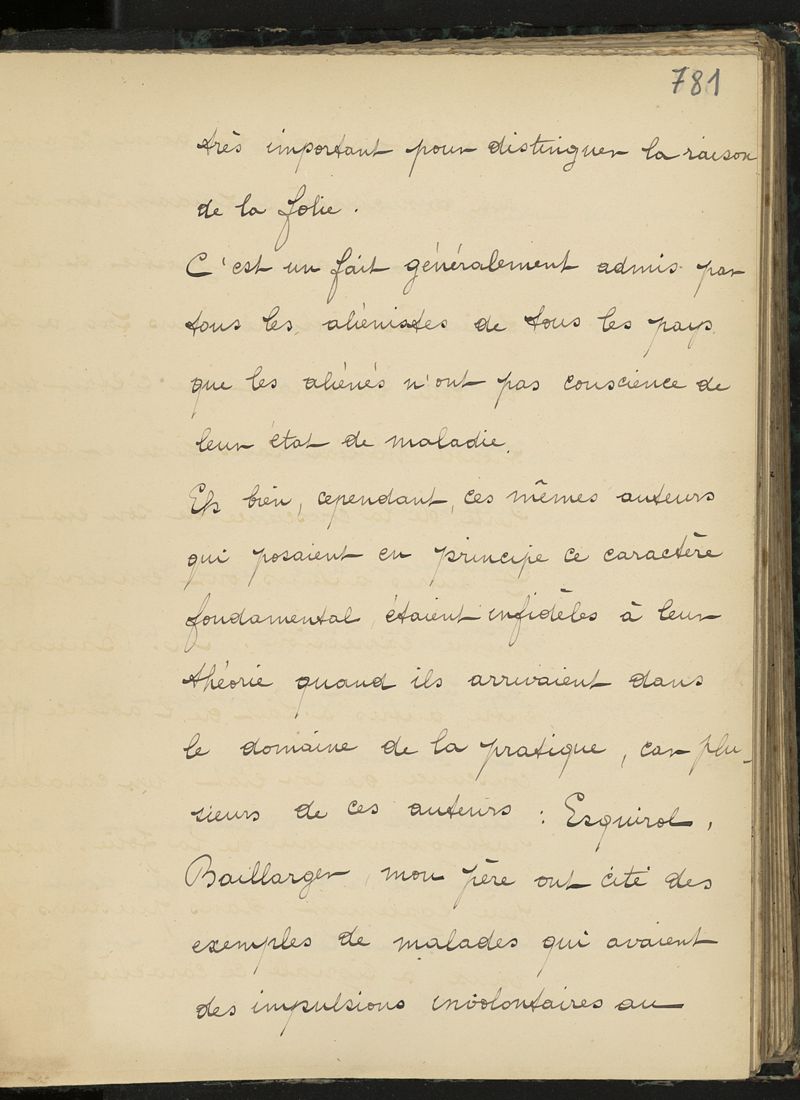 781
très important pour distinguer la raison
de la folie.
C'est un fait généralement admis par
tous les aliénistes de tous les pays
que les aliénés n'ont pas conscience de
leur état de maladie.
Eh bien, cependant, ces mêmes auteurs
qui posaient en principe ce caractère
fondamental, étaient infidèles à leur
théorie quand ils arrivaient dans
le domaine de la pratique, car plu-
sieurs de ces auteurs : Esquirol,
Baillarger, mon père ont cité des
exemples de malades qui avaient
des impulsions involontaires au